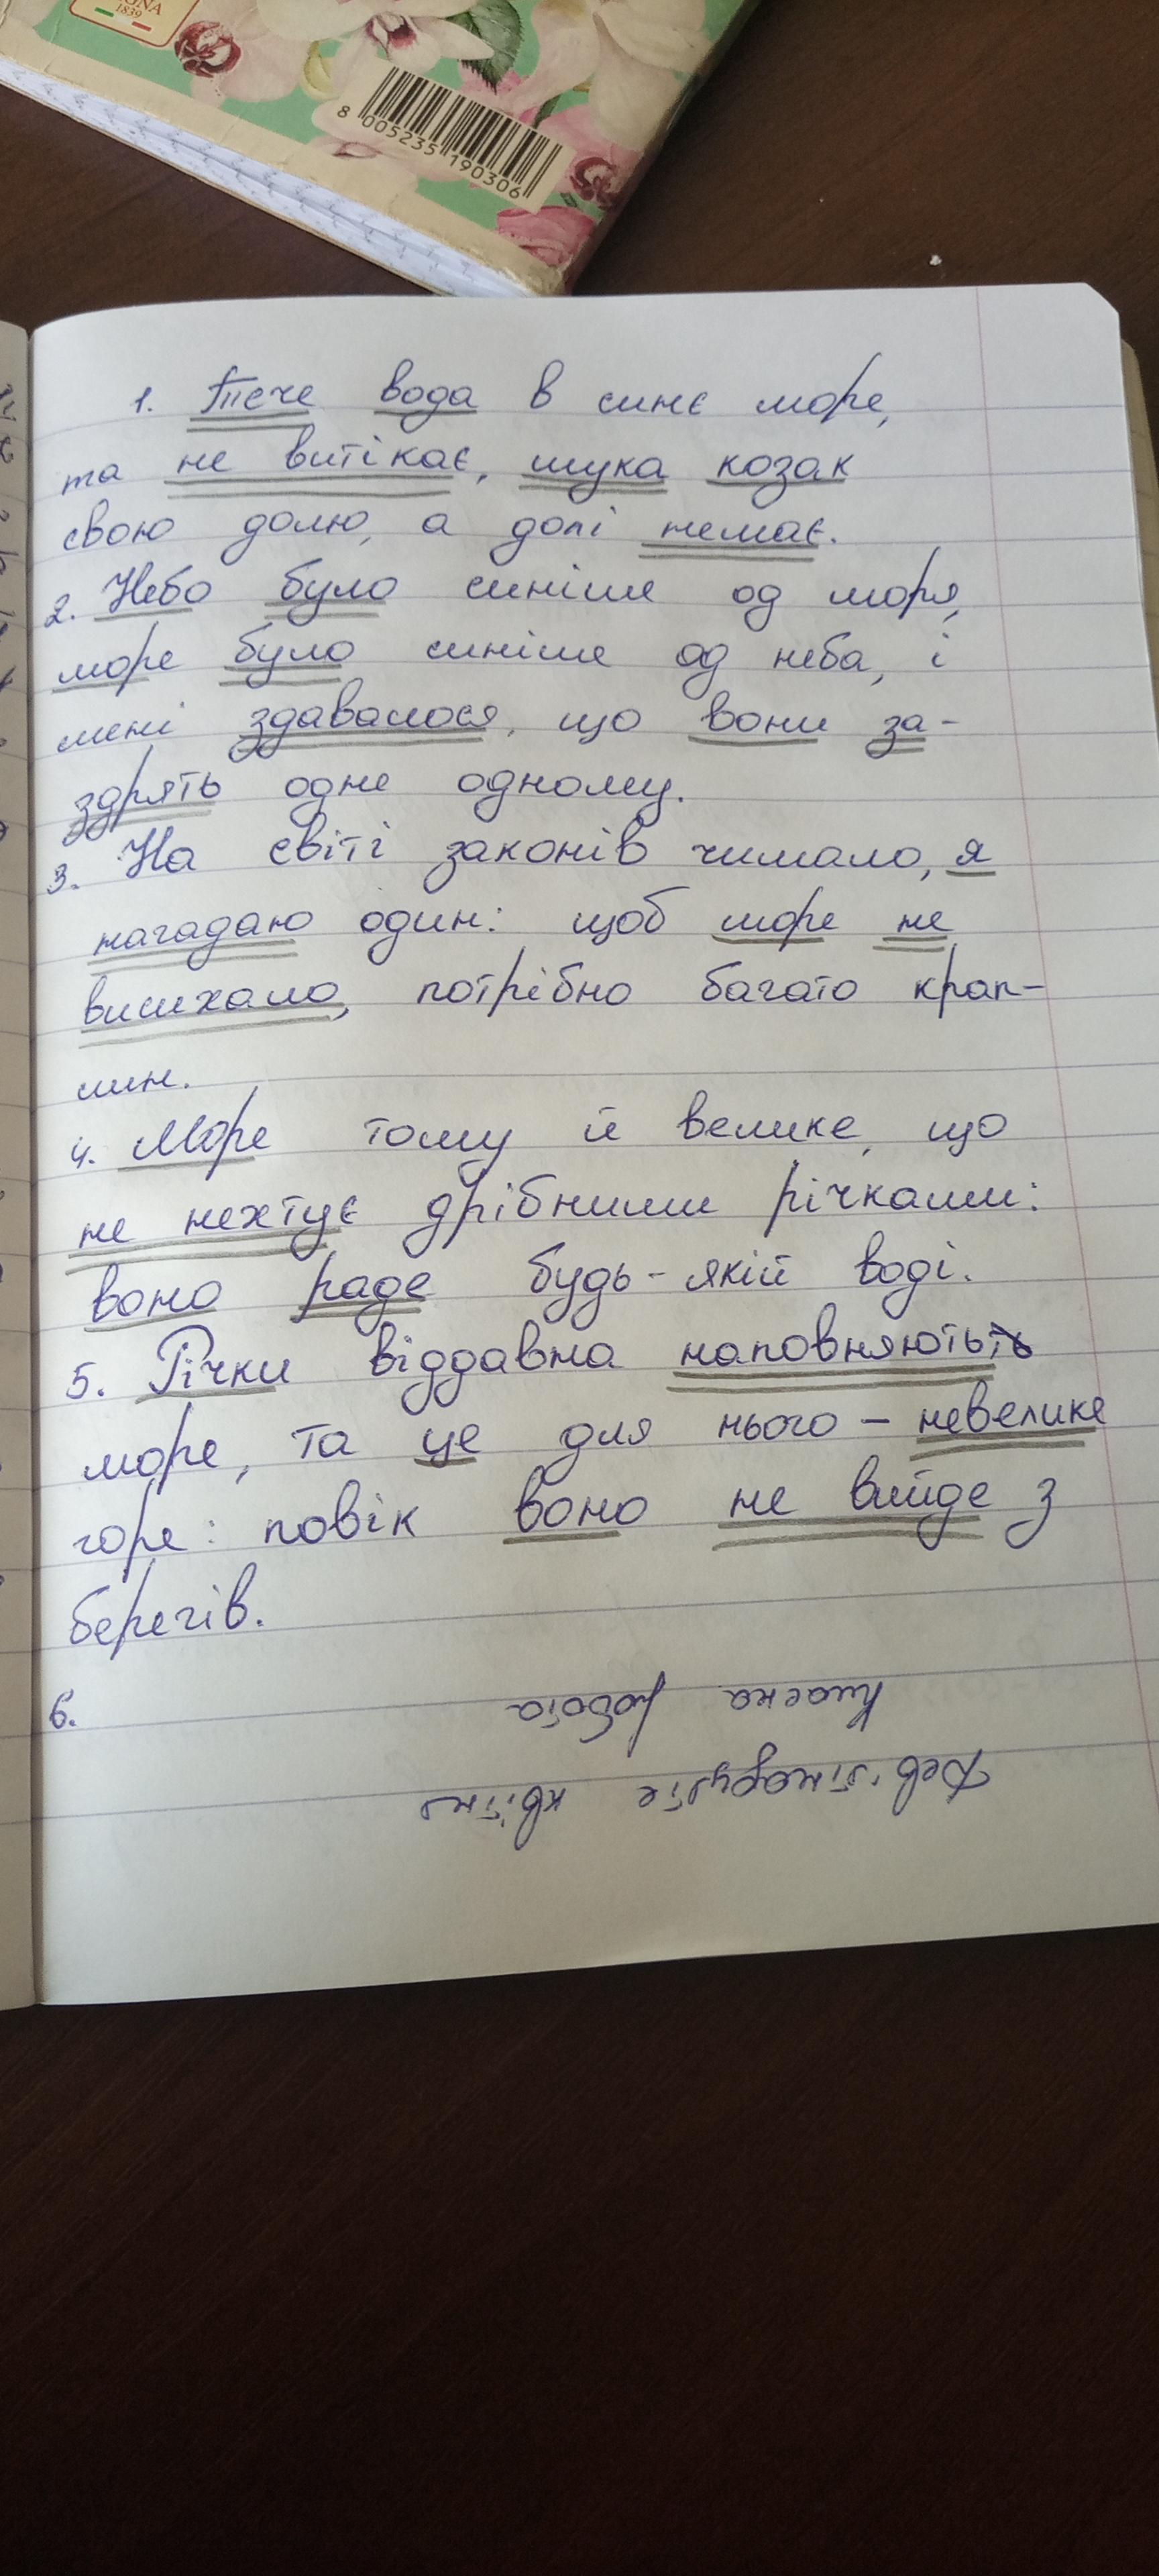 1839
8 005235 190306
1. Тече вода в синє море,
та не витікає, шука козак
свою долю, а долі немає.
2. Небо було синіше од моря,
море було синіше од неба, і
мені здавалося, що вони за-
здрять одне одному.
3. На світі законів чимало, я
нагадаю один: щоб море не
висихало, потрібно багато крап-
лин.
4. Море тому й велике, що
не нехтує дрібними річками:
воно раде будь-якій воді.
5. Річки віддавна наповняють
море, та це для нього – невелике
горе: повік воно не вийде з
берегів.
6.
Дев'ятнадцяте квітня
Класна робота